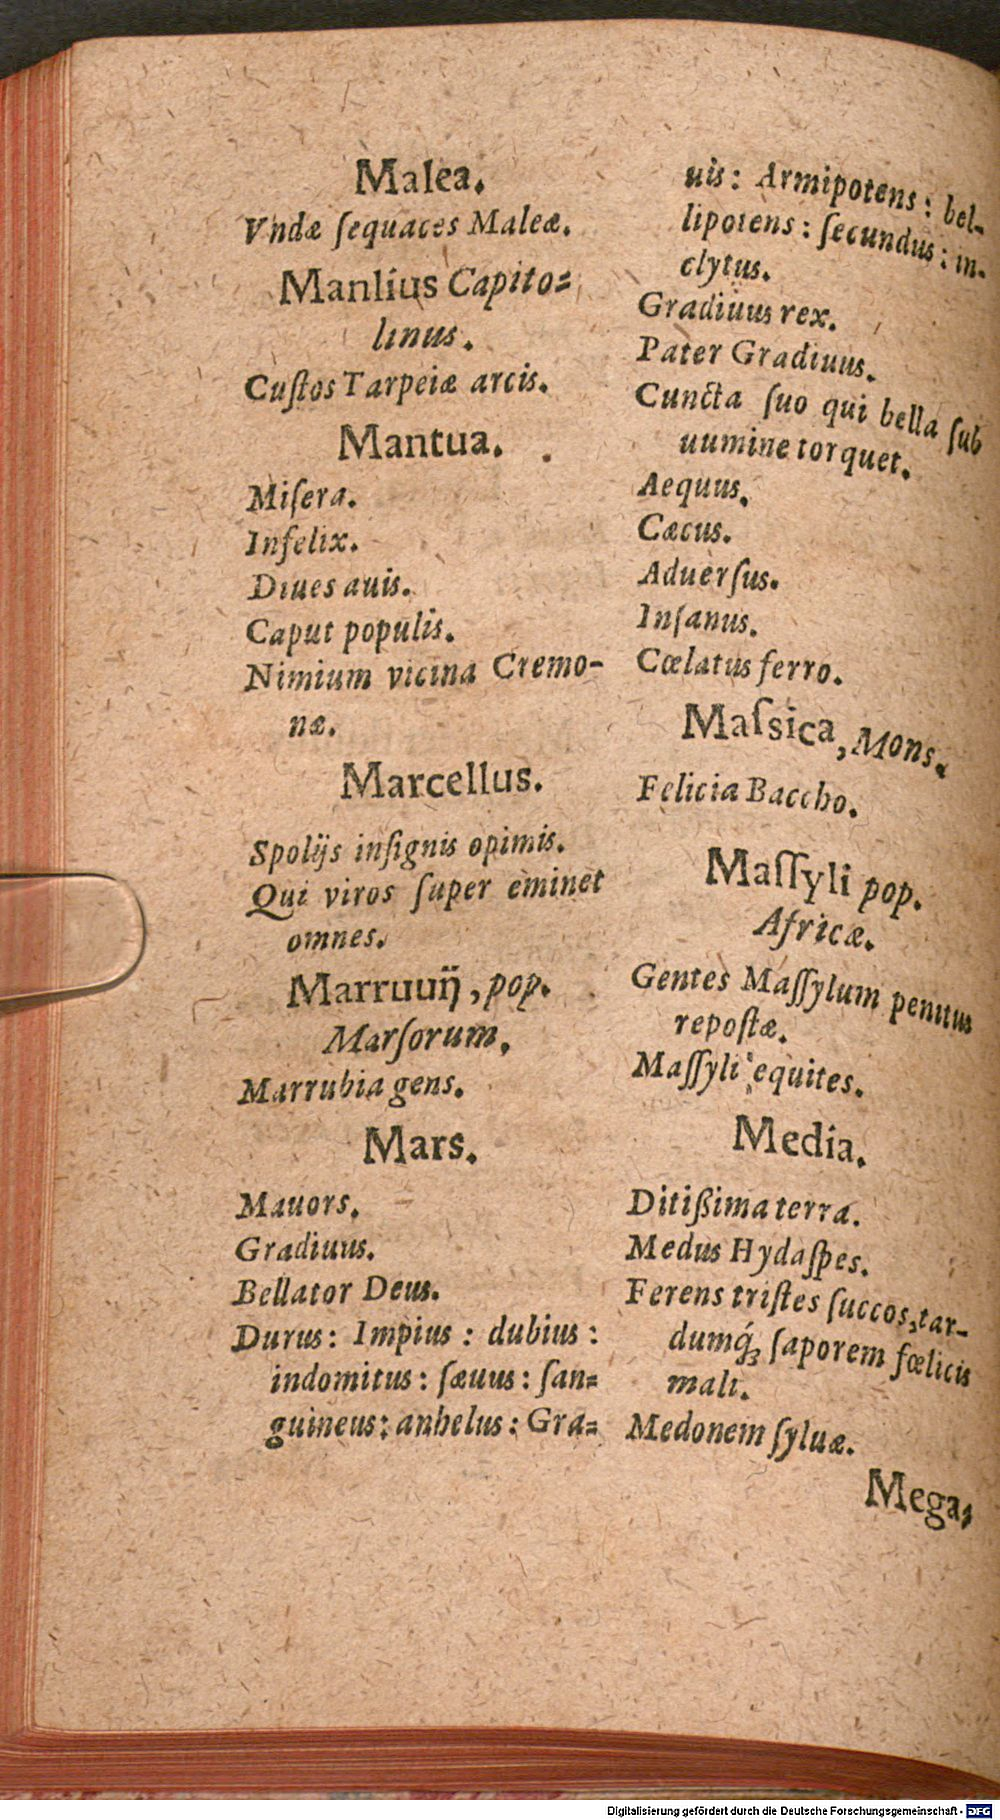 Malea.
Vndæ ſequaces Maleæ.
Manlius Capito=
linus.
Cuſtos Tarpeiæ arcis.
Mantua.
Miſera.
Infelix.
Diues auis.
Caput populis.
Nimium vicina Cremo-
næ.
Marcellus.
Spolijs inſignis opimis.
Qui viros ſuper eminet
omnes.
Marruuij, pop.
Marſorum.
Marrubia gens.
Mars.
Mauors.
Gradiuus.
Bellator Deus.
Durus: Impius: dubius:
indomitus: ſæuus: ſan=
guineus: anhelus: Gra=
uis: Armipotens: bel-
lipotens: ſecundus: in-
clytus.
Gradiuus rex.
Pater Gradiuus.
Cuncta ſuo qui bella ſub
uumine torquet.
Aequus.
Cæcus.
Aduerſus.
Inſanus.
Cœlatus ferro.
Maſsica, Mons.
Felicia Baccho.
Maſſyli pop.
Africæ.
Gentes Maſſylum penitus
repoſtæ.
Maſſyli equites.
Media.
Ditißima terra.
Medus Hydaſpes.
Ferens triſtes ſuccos, tar-
dumq́ꝫ ſaporem fœlicis
mali.
Medonem ſyluæ.
Mega,
Digitalisierung gefördert durch die Deutsche Forschungsgemeinschaft - DFG